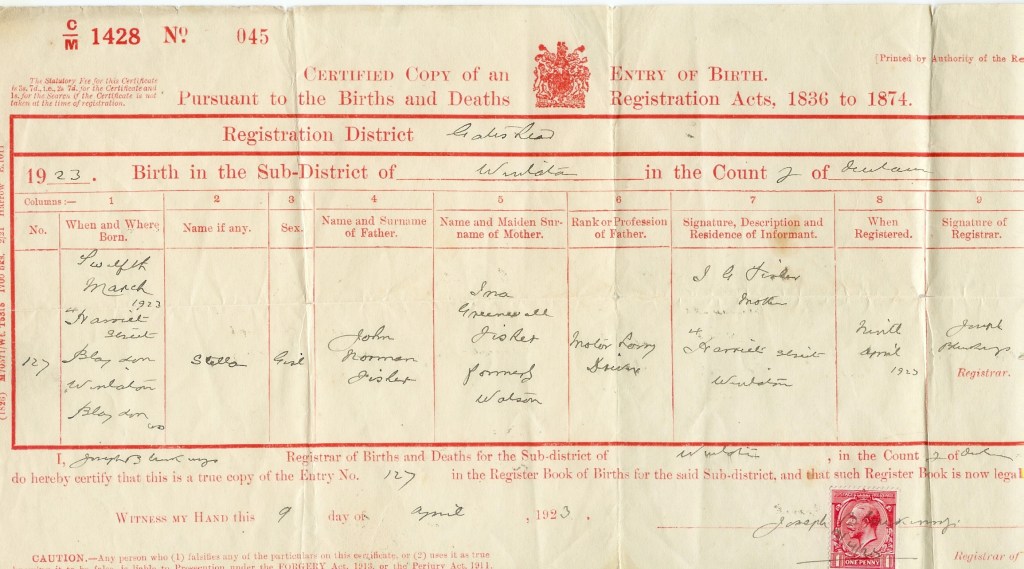 C/M 1428 No 045
[Printed by Authority of the Re
The Statutory Fee for this Certificate
is 3s. 7d., i.e., 2s. 7d. for the Certificate and
1s. for the Search if the Certificate is not
taken at the time of registration.
CERTIFIED COPY OF AN ENTRY OF BIRTH.
PURSUANT TO THE BIRTHS AND DEATHS REGISTRATION ACTS, 1836 TO 1874.
Registration District Gateshead
1923. Birth in the Sub-District of Winlaton in the County of Durham
Columns :— 1 2 3 4 5 6 7 8 9
No. When and Where Born. Name if any. Sex. Name and Surname of Father. Name and Maiden Surname of Mother. Rank or Profession of Father. Signature, Description and Residence of Informant. When Registered. Signature of Registrar.
127
Twelfth
March
1923
Harriet
Street
Blaydon
Winlaton
Blaydon
Stella
Girl
John
Norman
Fisher
Ina
Greenwell
Fisher
formerly
Watson
Motor Lorry
Driver
I G Fisher
Mother
Harriet Street
Winlaton
Ninth
April
1923
Joseph
Registrar.
I, Joseph Registrar of Births and Deaths for the Sub-district of Winlaton, in the County of
do hereby certify that this is a true copy of the Entry No. 127 in the Register Book of Births for the said Sub-district, and that such Register Book is now legal
WITNESS MY HAND this 9 day of April, 1923.
Joseph
Registrar of
ONE PENNY
CAUTION.—Any person who (1) falsifies any of the particulars on this certificate, or (2) uses it as true
knowing it to be false, is liable to Prosecution under the FORGERY Act, 1913, or the Perjury Act, 1911.